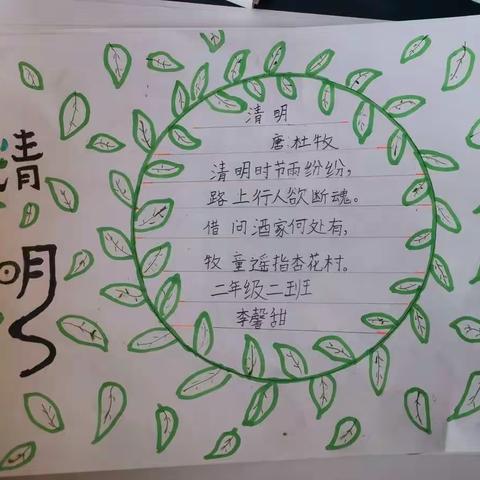 清明
清明
唐:杜牧
清明时节雨纷纷,
路上行人欲断魂。
借问酒家何处有,
牧童遥指杏花村。
二年级二班
李馨甜